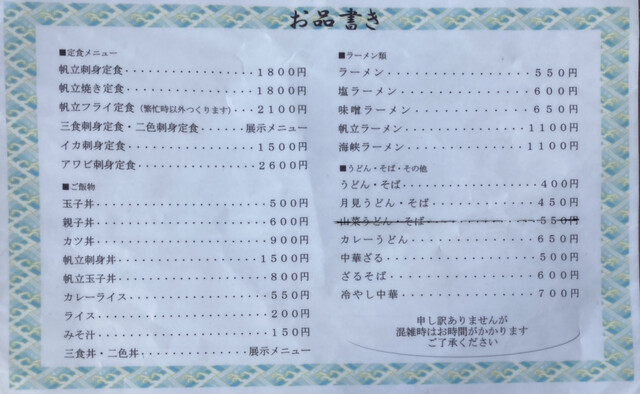 お品書き
■定食メニュー
帆立刺身定食・・・・・・・・・・・・・・・1800円
帆立焼き定食・・・・・・・・・・・・・・・1800円
帆立フライ定食（繁忙時以外つくります）・・・2100円
三食刺身定食・二色刺身定食・・・・・展示メニュー
イカ刺身定食・・・・・・・・・・・・・・・1500円
アワビ刺身定食・・・・・・・・・・・・・・2600円
■ご飯物
玉子丼・・・・・・・・・・・・・・・・・・・500円
親子丼・・・・・・・・・・・・・・・・・・・600円
カツ丼・・・・・・・・・・・・・・・・・・・900円
帆立刺身丼・・・・・・・・・・・・・・・・1500円
帆立玉子丼・・・・・・・・・・・・・・・・・800円
カレーライス・・・・・・・・・・・・・・・・550円
ライス・・・・・・・・・・・・・・・・・・・200円
みそ汁・・・・・・・・・・・・・・・・・・・150円
三食丼・二色丼・・・・・・・・・・・展示メニュー
■ラーメン類
ラーメン・・・・・・・・・・・・・・・550円
塩ラーメン・・・・・・・・・・・・・・600円
味噌ラーメン・・・・・・・・・・・・・650円
帆立ラーメン・・・・・・・・・・・・1100円
海峡ラーメン・・・・・・・・・・・・1100円
■うどん・そば・その他
うどん・そば・・・・・・・・・・・・・400円
月見うどん・そば・・・・・・・・・・・450円
山菜うどん・そば・・・・・・・・・・・550円
カレーうどん・・・・・・・・・・・・・650円
中華ざる・・・・・・・・・・・・・・・500円
ざるそば・・・・・・・・・・・・・・・600円
冷やし中華・・・・・・・・・・・・・・700円
申し訳ありませんが
混雑時はお時間がかかります
ご了承ください